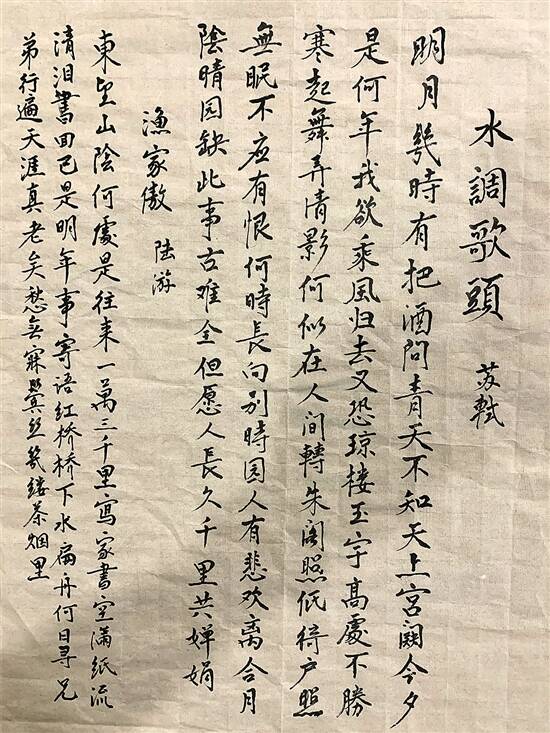 水調歌頭 苏軾
明月幾時有把酒問青天不知天上宮闕今夕
是何年我欲乘風归去又恐琼楼玉宇高處不勝
寒起舞弄清影何似在人间轉朱阁照低绮户照
無眠不应有恨何時長向别時园人有悲欢离合月
陰晴园缺此事古难全但愿人長久千里共婵娟
渔家傲 陆游
東望山陰何處是往来一萬三千里寫家書空滿纸流
清泪書回已是明年事寄语红桥桥下水扁舟何日寻兄
弟行遍天涯真老矣愁无寐鬓丝幾缕茶烟里